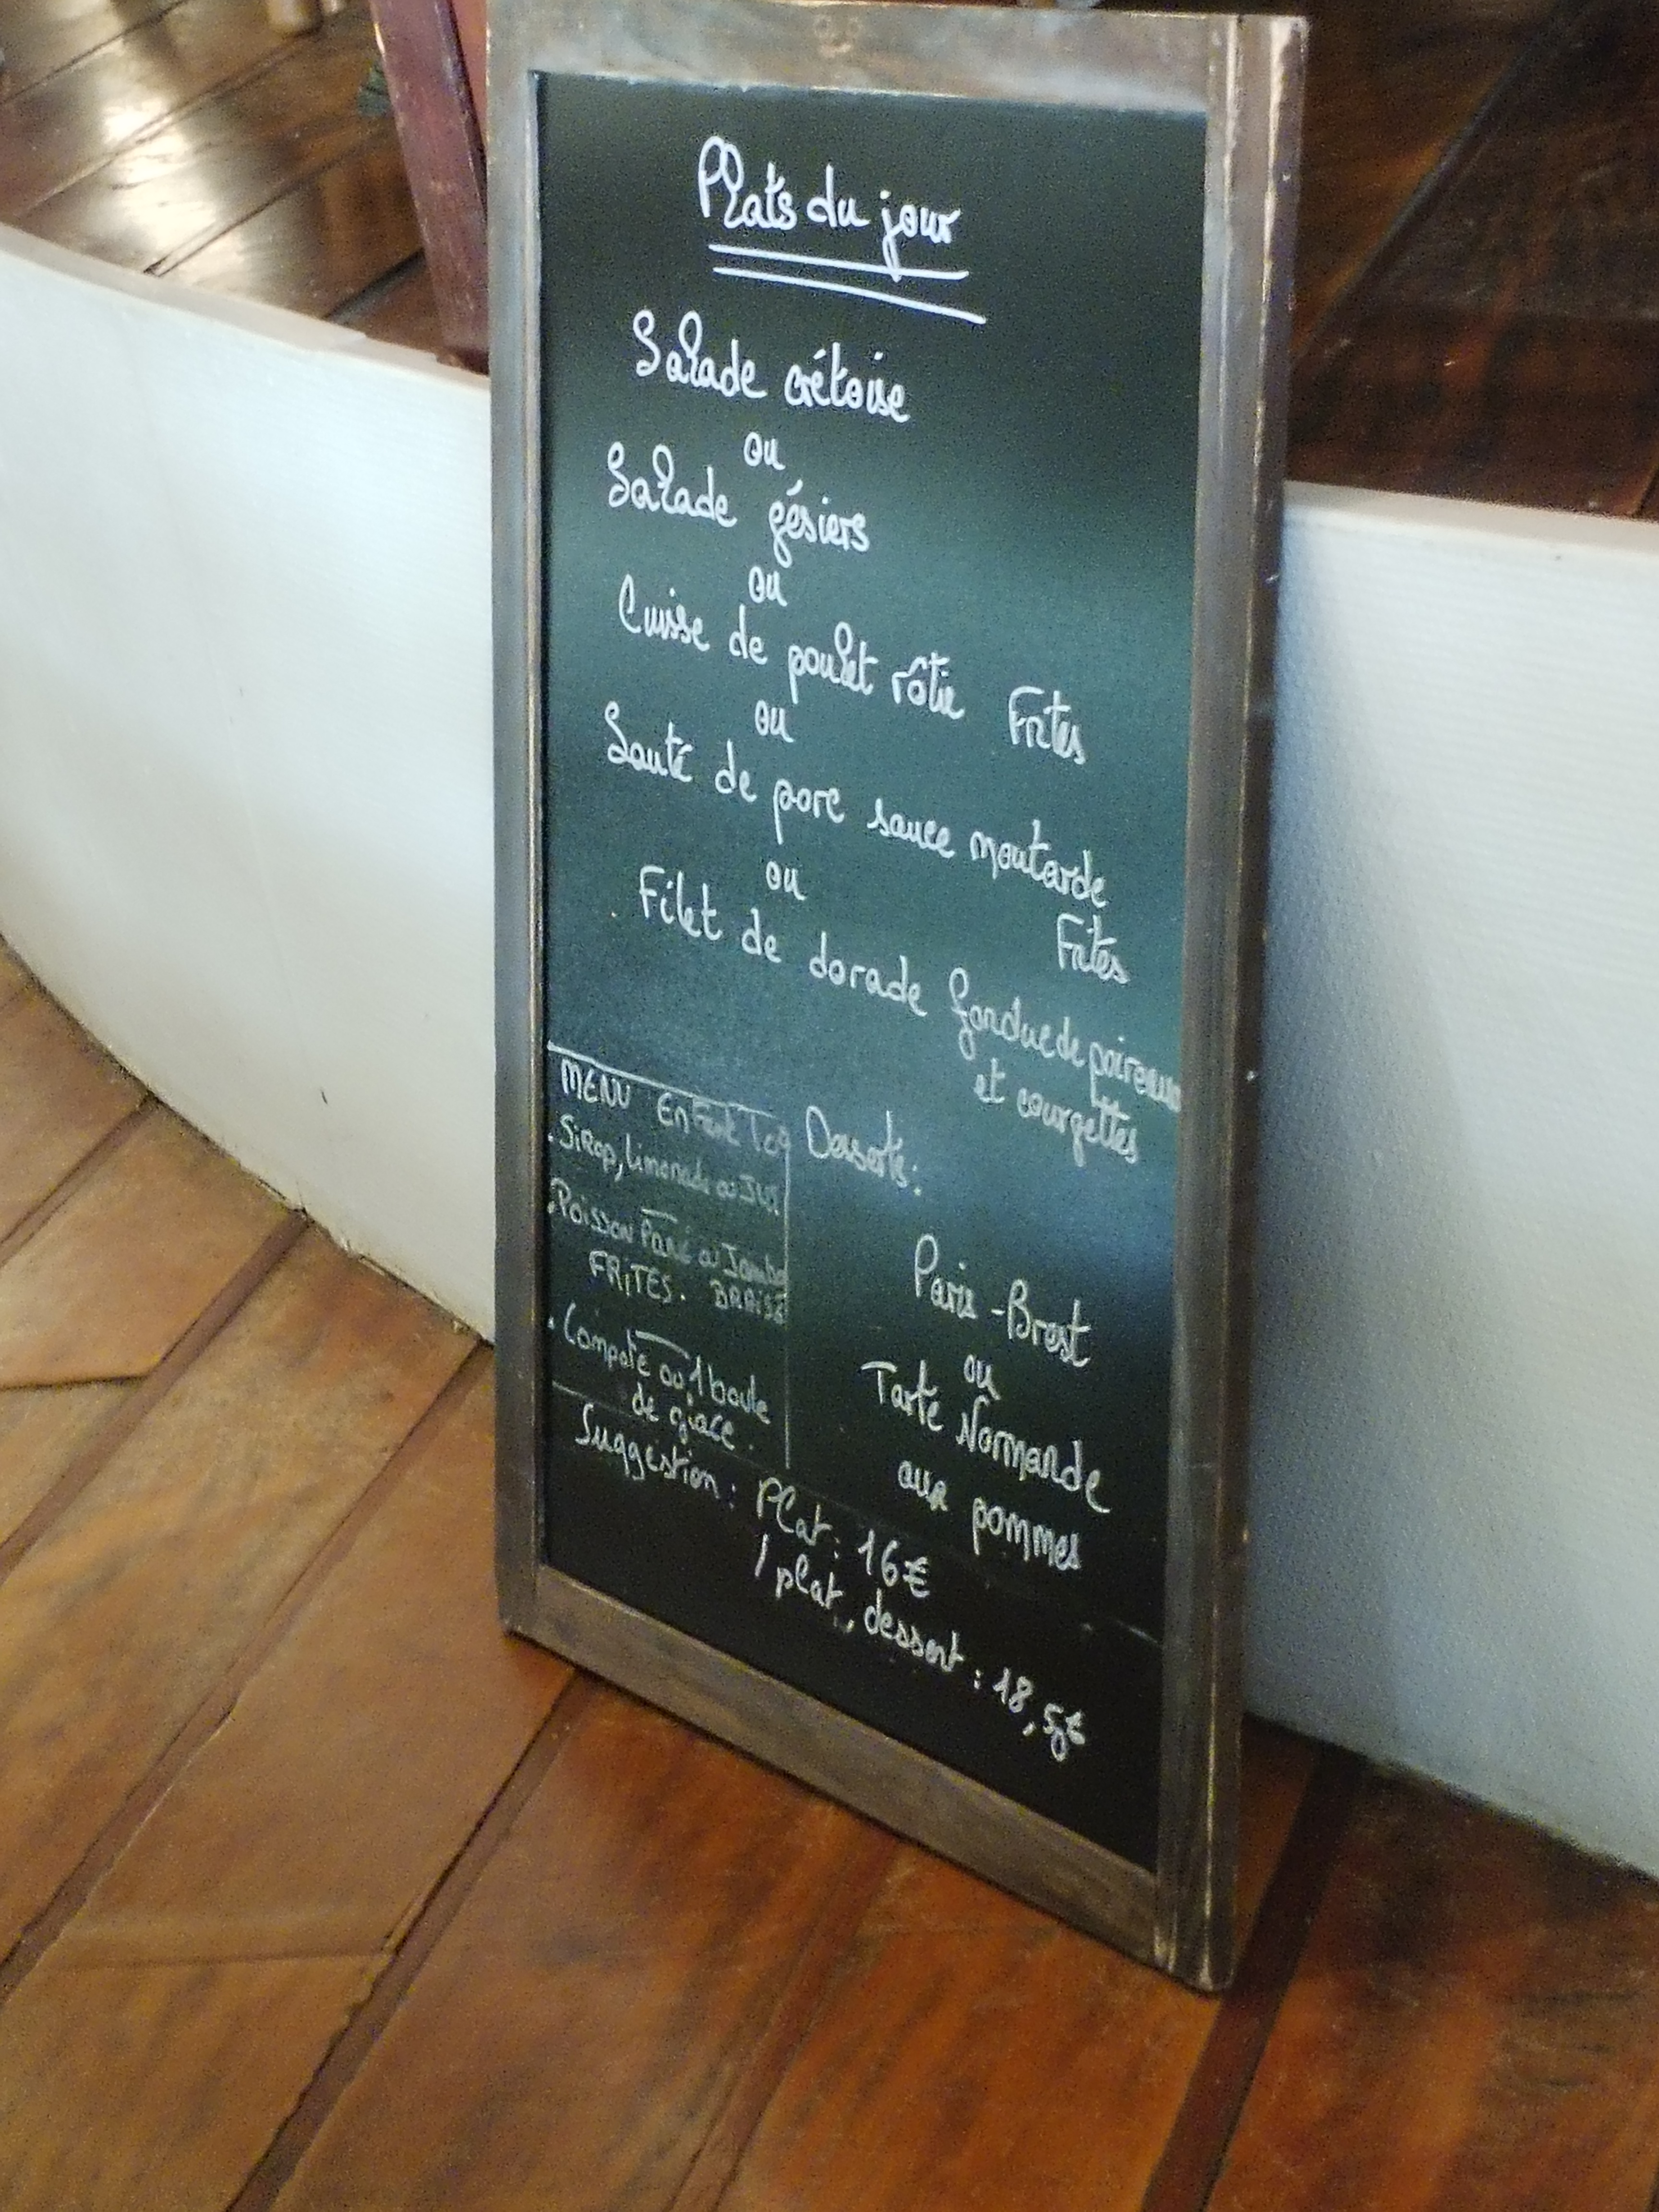 Plats du jour
Salade crétoise
ou
Salade gésiers
ou
Cuisse de poulet rôtie Frites
ou
Sauté de porc sauce moutarde
Frites
ou
Filet de dorade fondue de poireaux
et courgettes
MENU Enfant
. Sirop, limonade ou Jus
. Poisson Pané ou Jambon
FRITES. BRAISÉ
. Compote ou 1 boule
de glace.
Desserts:
Paris-Brest
ou
Tarte Normande
aux pommes
Suggestion: Plat: 16€
/ plat, dessert: 18,5€